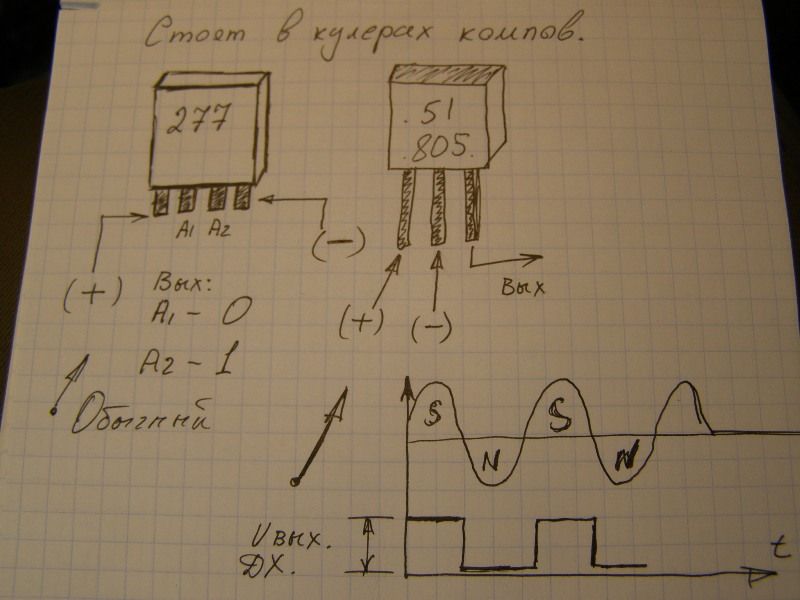 Стоят в кулерах компов.
277
.51
.805.
A1 A2
(+)
(−)
Вых:
A1 - 0
A2 - 1
Обычный
(+)
(−)
Вых
S
S
N
N
Uвых.
ДХ.
t